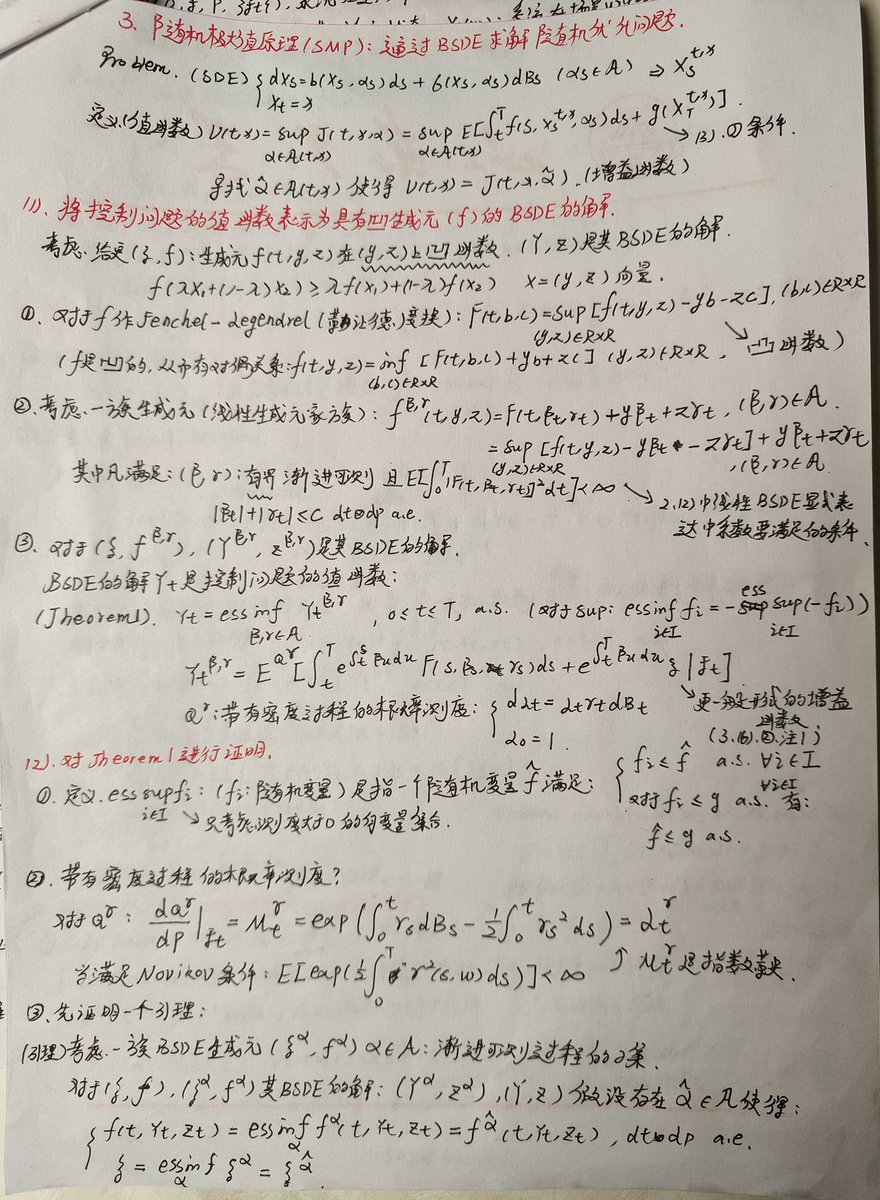 3、随机极大值原理(SMP)：通过BSDE求解随机优化问题.
Problem. (SDE) { dXs = b(Xs, αs)ds + б(Xs, αs)dBs (αs∈A) ⇒ Xs^{t,x}
Xt = x
定义(值函数) V(t,x) = sup_{α∈A(t,x)} J(t,x,α) = sup_{α∈A(t,x)} E[∫_t^T f(s, Xs^{t,x}, αs)ds + g(X_T^{t,x})].
→ (3).① 条件.
寻找 α̂∈A(t,x) 使得 V(t,x) = J(t,x,α̂). (增益函数)
(1)、将控制问题的值函数表示为具有凹生成元(f)的BSDE的解.
考虑.给定(ξ, f)：生成元 f(t,y,z)在(y,z)上凹函数. (Y,Z)是其BSDE的解.
f(λx1+(1-λ)x2) ≥ λf(x1)+(1-λ)f(x2) x=(y,z)向量.
①、对于f作Fenchel-Legendrel(勒让德)变换)：F(t,b,c) = sup_{(y,z)∈R×R} [f(t,y,z) - yb - zc], (b,c)∈R×R
(f是凹的, 从而有对偶关系: f(t,y,z) = inf_{(b,c)∈R×R} [F(t,b,c)+yb+zc] (y,z)∈R×R, 凹函数)
②、考虑.一族生成元(线性生成元家族)：f^{β,γ}(t,y,z) = F(t,βt,γt) + yβt + zγt, (β,γ)∈A.
= sup_{(y,z)∈R×R} [f(t,y,z) - yβt - zγt] + yβt + zγt
, (β,γ)∈A.
其中A满足：(β,γ)：有界 渐进可测 且 E[∫_0^T |F(t,βt,γt)|²dt] < ∞
|βt|+|γt| ≤ C dt⊗dp a.e.
→ 2.(2)中线性BSDE显式表
达中系数要满足的条件.
③、对于(ξ, f^{β,γ}), (Y^{β,γ}, Z^{β,γ})是其BSDE的解.
BSDE的解Yt是控制问题的值函数：
(Theorem1). Yt = ess inf_{β,γ∈A} Yt^{β,γ}, 0≤t≤T, a.s. (对于sup: ess inf_{i∈I} fi = -ess sup_{i∈I}(-fi))
Yt^{β,γ} = E^{Q^γ}[∫_t^T e^{∫_t^s βudu} F(s,βs,γs)ds + e^{∫_t^T βudu} ξ | Ft]
→ 更一般形式的增益
函数
Q^γ：带有密度过程的概率测度：{ dαt = αtγtdBt
α0 = 1.
(2).对Theorem1进行证明.
①.定义.ess sup_{i∈I} fi：(fi：随机变量)是指一个随机变量 f̂ 满足：{ fi ≤ f̂ a.s. ∀i∈I
对于 fi ≤ g a.s. ∀i∈I 有：
f̂ ≤ g a.s.
↘ 只考虑测度大于0的自变量集合.
②.带有密度过程的概率测度?
对于Q^γ：dQ^γ/dp |_{Ft} = Mt^γ = exp(∫_0^t γsdBs - ½∫_0^t γs²ds) = αt^γ
当满足Novikov条件：E[exp(½∫_0^T γ²(s,w)ds)] < ∞ ↑ Mt^γ 是指数鞅.
③.先证明一个引理：
(引理)考虑.一族BSDE生成元(ξ^α, f^α) α∈A：渐进可测过程的子集.
对于(ξ, f), (ξ^α, f^α)其BSDE的解：(Y^α, Z^α), (Y,Z) 假设存在 α̂∈A使得：
{ f(t,Yt,Zt) = ess inf_α f^α(t,Yt,Zt) = f^α̂(t,Yt,Zt), dt⊗dp a.e.
ξ = ess inf_α ξ^α = ξ^α̂.